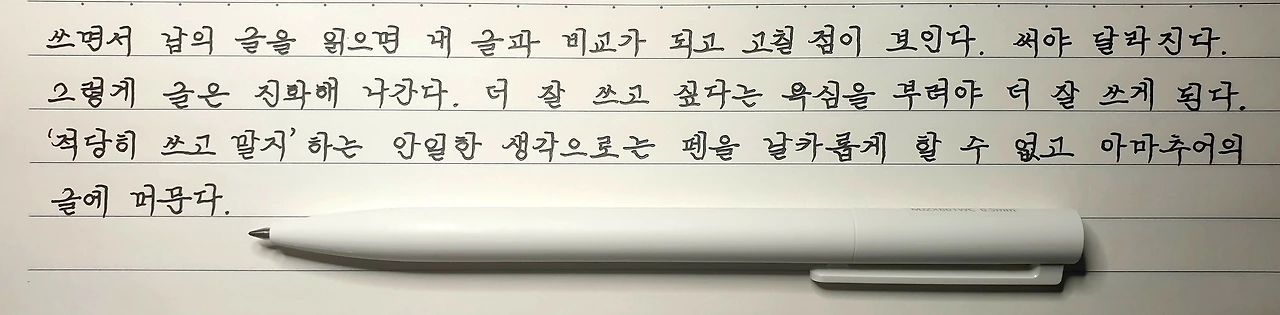 쓰면서 남의 글을 읽으면 내 글과 비교가 되고 고칠 점이 보인다. 써야 달라진다.
그렇게 글은 진화해 나간다. 더 잘 쓰고 싶다는 욕심을 부려야 더 잘 쓰게 된다.
'적당히 쓰고 말지' 하는 안일한 생각으로는 펜을 날카롭게 할 수 없고 아마추어의
글에 머문다.
0.5mm